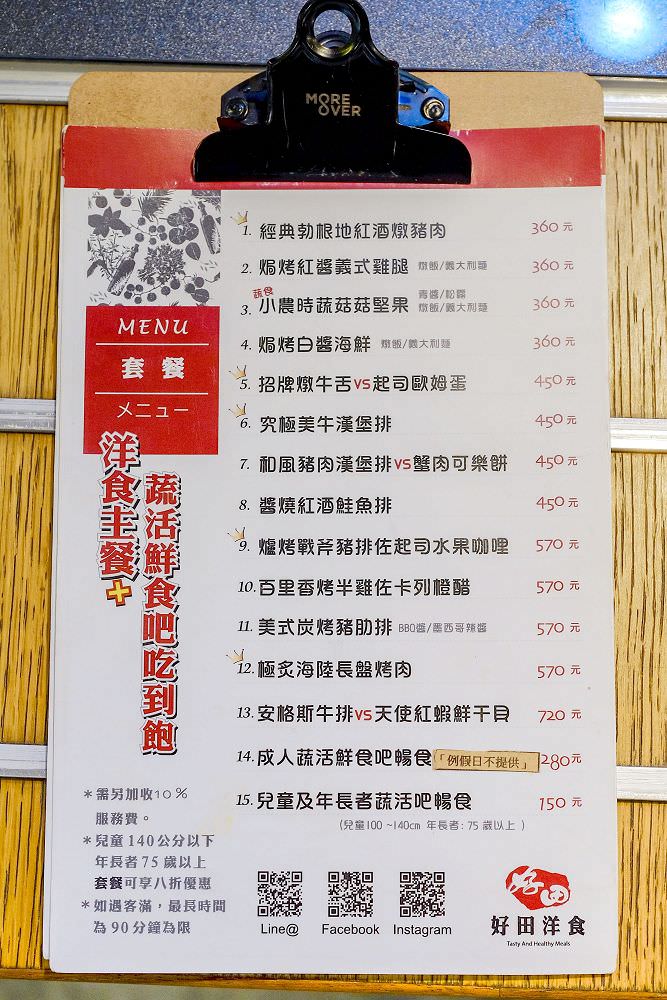 MORE
OVER
MENU
套餐
メニュー
洋食主餐+
蔬活鮮食吧吃到飽
1. 經典勃根地紅酒燉豬肉 360元
2. 焗烤紅醬義式雞腿 燉飯/義大利麵 360元
蔬食 青醬/松露
3. 小農時蔬菇菇堅果 燉飯/義大利麵 360元
4. 焗烤白醬海鮮 燉飯/義大利麵 360元
5. 招牌燉牛舌vs起司歐姆蛋 450元
6. 究極美牛漢堡排 450元
7. 和風豬肉漢堡排vs蟹肉可樂餅 450元
8. 醬燒紅酒鮭魚排 450元
9. 爐烤戰斧豬排佐起司水果咖哩 570元
10. 百里香烤半雞佐卡列橙醋 570元
11. 美式炭烤豬肋排 BBQ醬/墨西哥辣醬 570元
12. 極炙海陸長盤烤肉 570元
13. 安格斯牛排vs天使紅蝦鮮干貝 720元
14. 成人蔬活鮮食吧暢食「例假日不提供」280元
15. 兒童及年長者蔬活吧暢食 150元
(兒童100 ~140cm 年長者: 75 歲以上 )
*需另加收10%
服務費。
*兒童 140公分以下
年長者 75 歲以上
套餐可享八折優惠
*如遇客滿，最長時間
為 90 分鐘為限
Line@ Facebook Instagram
好田
好田洋食
Tasty And Healthy Meals